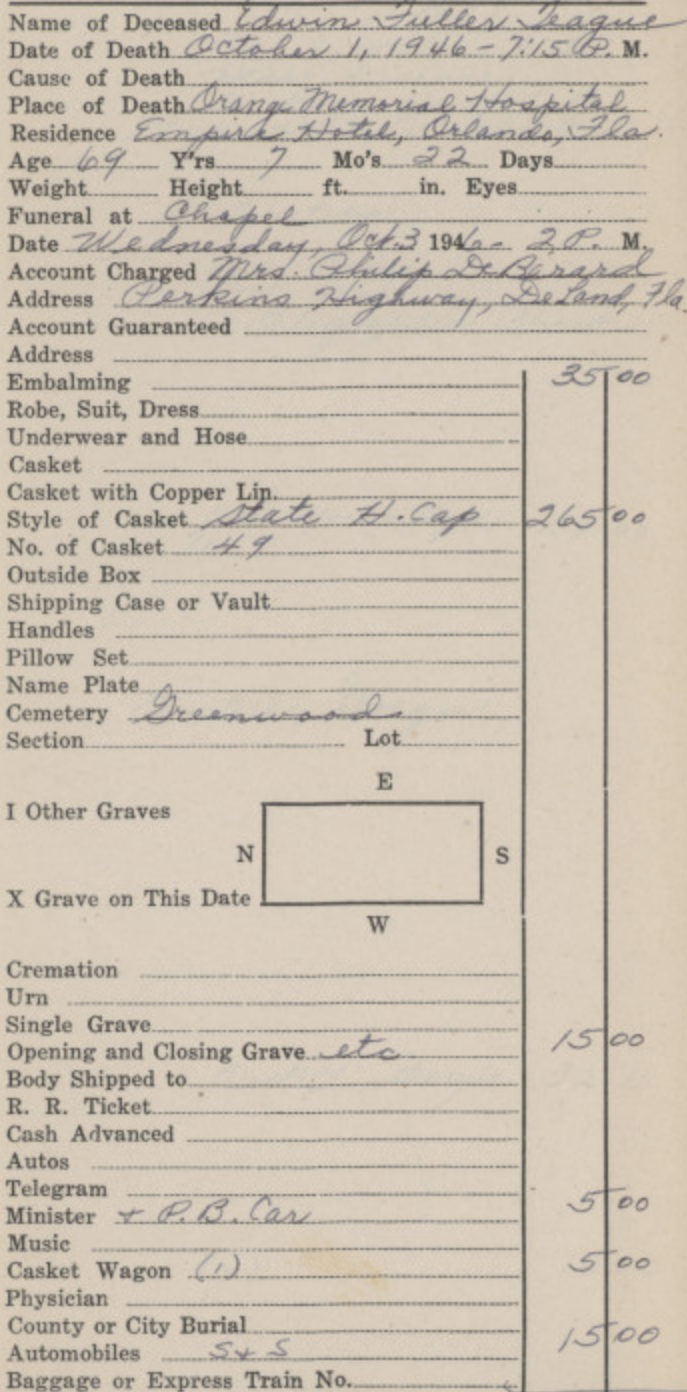 Name of Deceased Edwin Fuller Teague
Date of Death October 1, 1946 - 7:15 P. M.
Cause of Death
Place of Death Orange Memorial Hospital
Residence Empire Hotel, Orlando, Fla.
Age 69 Y'rs 7 Mo's 22 Days
Weight Height ft. in. Eyes
Funeral at Chapel
Date Wednesday, Oct. 3 1946 - 2 P. M.
Account Charged Mrs. Philip DeBerard
Address Perkins Highway, DeLand, Fla.
Account Guaranteed
Address
Embalming 35 00
Robe, Suit, Dress
Underwear and Hose
Casket
Casket with Copper Lin.
Style of Casket State H. Cap 265 00
No. of Casket 49
Outside Box
Shipping Case or Vault
Handles
Pillow Set
Name Plate
Cemetery Greenwood
Section Lot
E
I Other Graves
N S
X Grave on This Date
W
Cremation
Urn
Single Grave
Opening and Closing Grave etc 15 00
Body Shipped to
R. R. Ticket
Cash Advanced
Autos
Telegram
Minister + P. B. Car 5 00
Music
Casket Wagon (1) 5 00
Physician
County or City Burial
Automobiles S + S 15 00
Baggage or Express Train No.